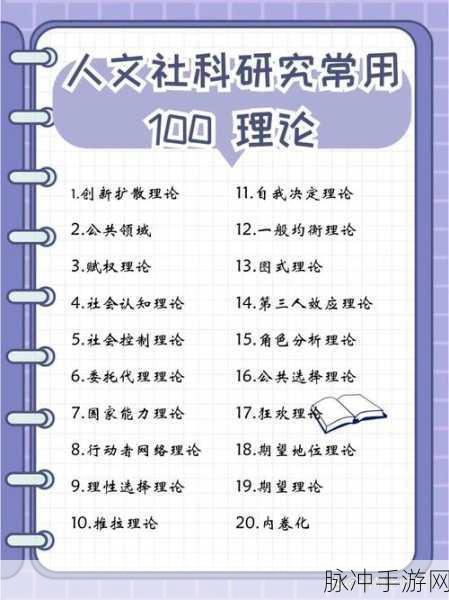 人文社科研究常用
100 理论
1.创新扩散理论
2.公共领域
3.赋权理论
4.社会认知理论
5.社会控制理论
6.委托代理理论
7.国家能力理论
8.行动者网络理论
9.理性选择理论
10.推拉理论
11.自我决定理论
12.一般均衡理论
13.图式理论
14.第三人效应理论
15.角色分析理论
16.公共选择理论
17.狂欢理论
18.期望地位理论
19.期望理论
20.内卷化
脉冲手游网